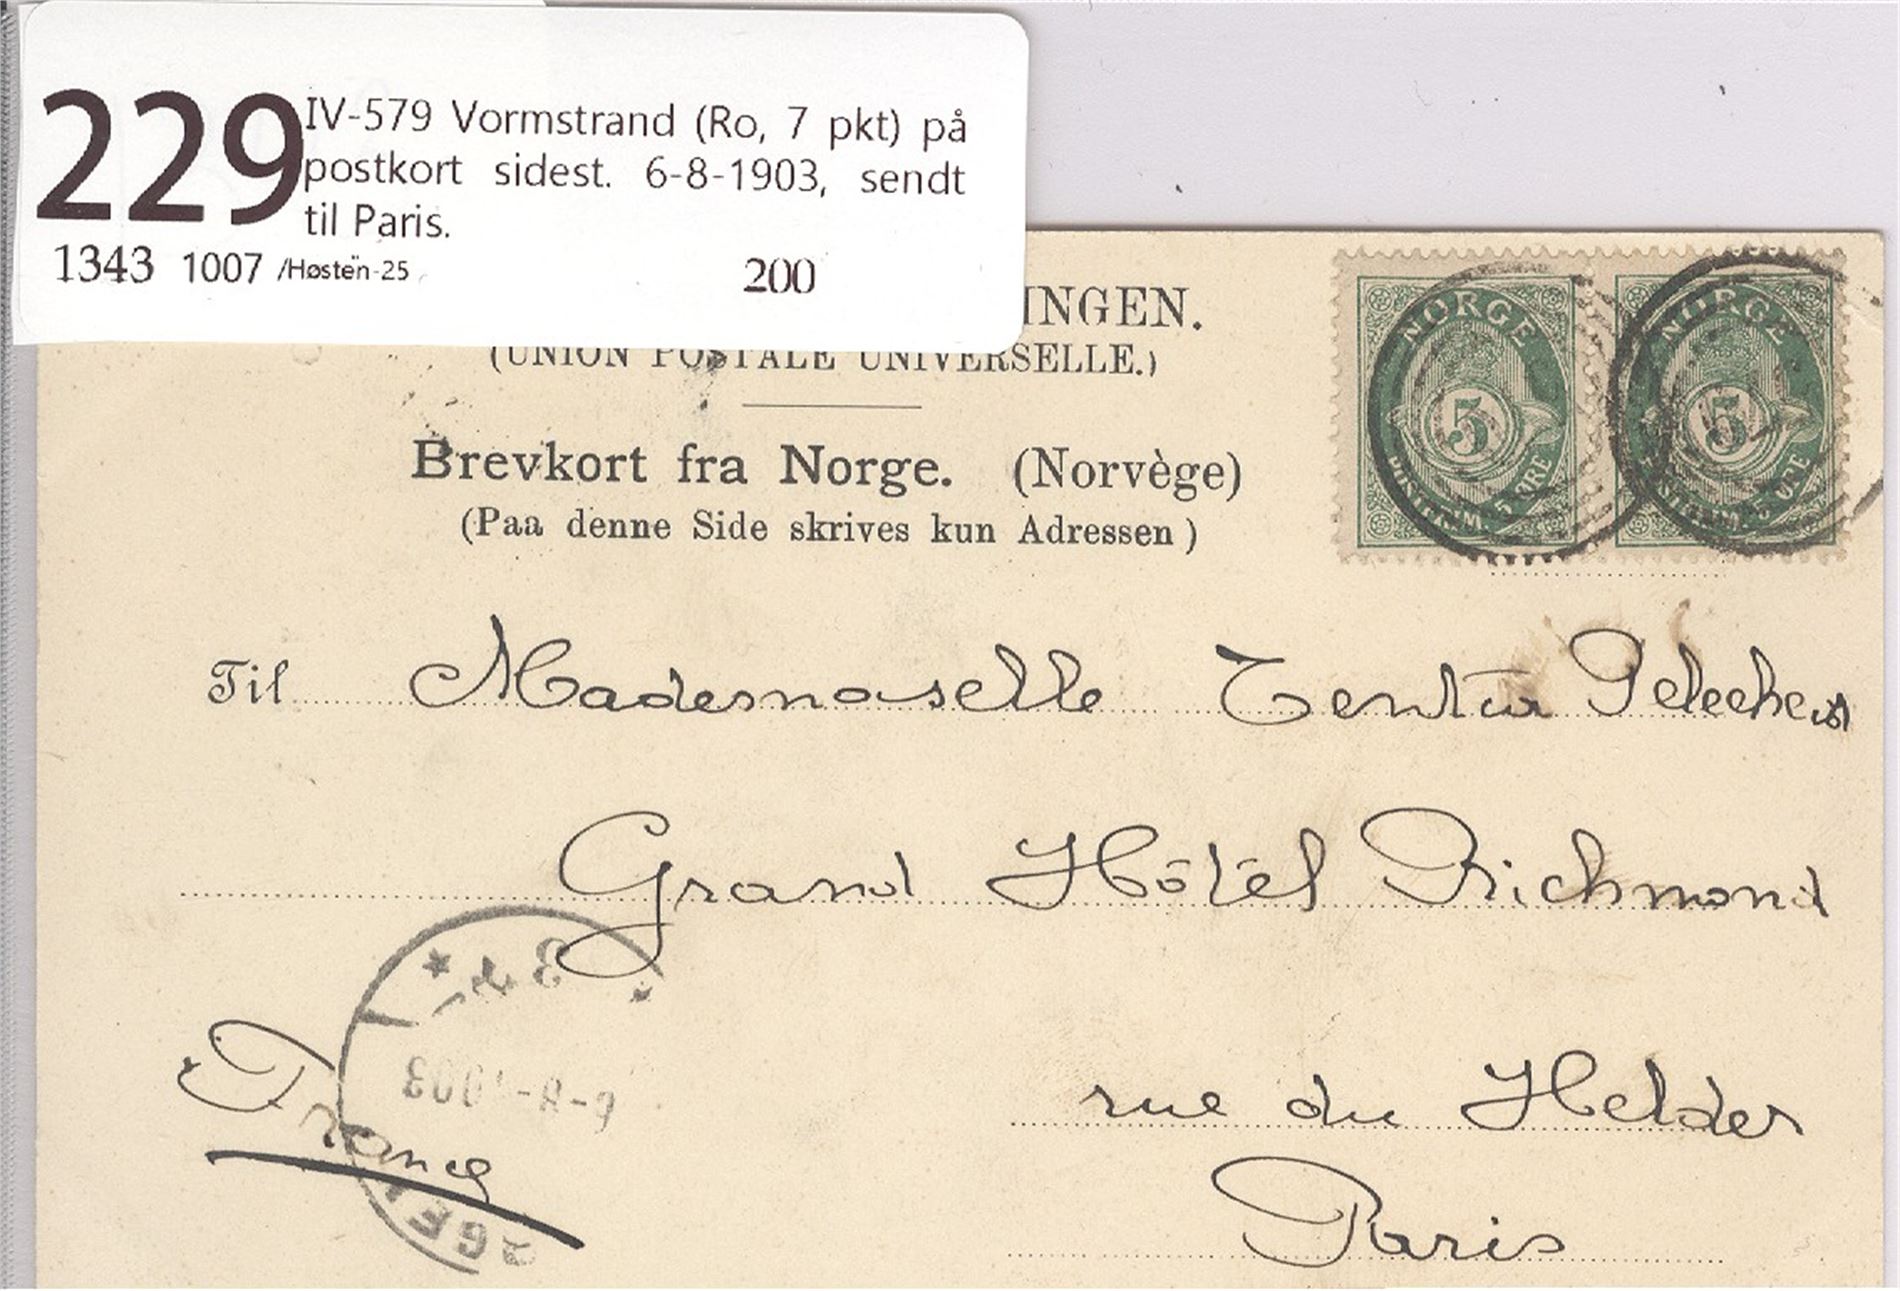 229
IV-579 Vormstrand (Ro, 7 pkt) på
postkort sidest. 6-8-1903, sendt
til Paris.
1343 1007 /Høsten-25 200
INGEN.
(UNION POSTALE UNIVERSELLE.)
Brevkort fra Norge. (Norvège)
(Paa denne Side skrives kun Adressen)
NORGE
5
POSTFRIM. 5 ØRE
NORGE
5
POSTFRIM. 5 ØRE
Til Mademoiselle
Grand Hôtel Richmond
6-8-1903
France
rue du Helder
Paris